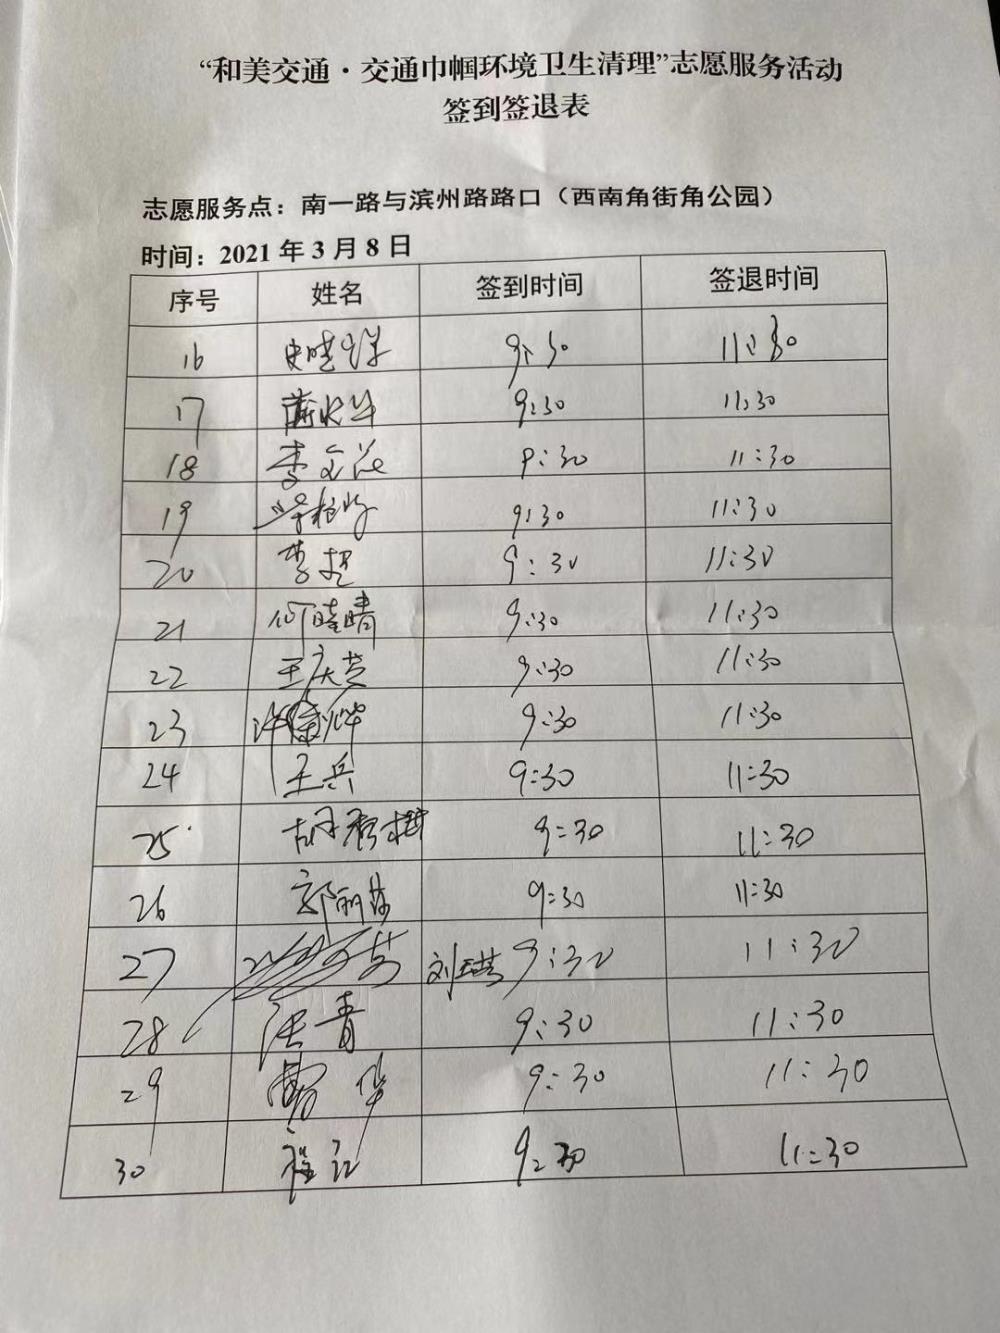 “和美交通·交通巾帼环境卫生清理”志愿服务活动
签到签退表
志愿服务点：南一路与滨州路路口（西南角街角公园）
时间：2021年3月8日
序号 姓名 签到时间 签退时间
16 9:30 11:30
17 9:30 11:30
18 李 9:30 11:30
19 9:30 11:30
20 李超 9:30 11:30
21 何晴 9:30 11:30
22 王庆芝 9:30 11:30
23 许 9:30 11:30
24 王兵 9:30 11:30
25 胡 9:30 11:30
26 郭丽 9:30 11:30
27 刘 9:30 11:30
28 汪青 9:30 11:30
29 华 9:30 11:30
30 9:30 11:30